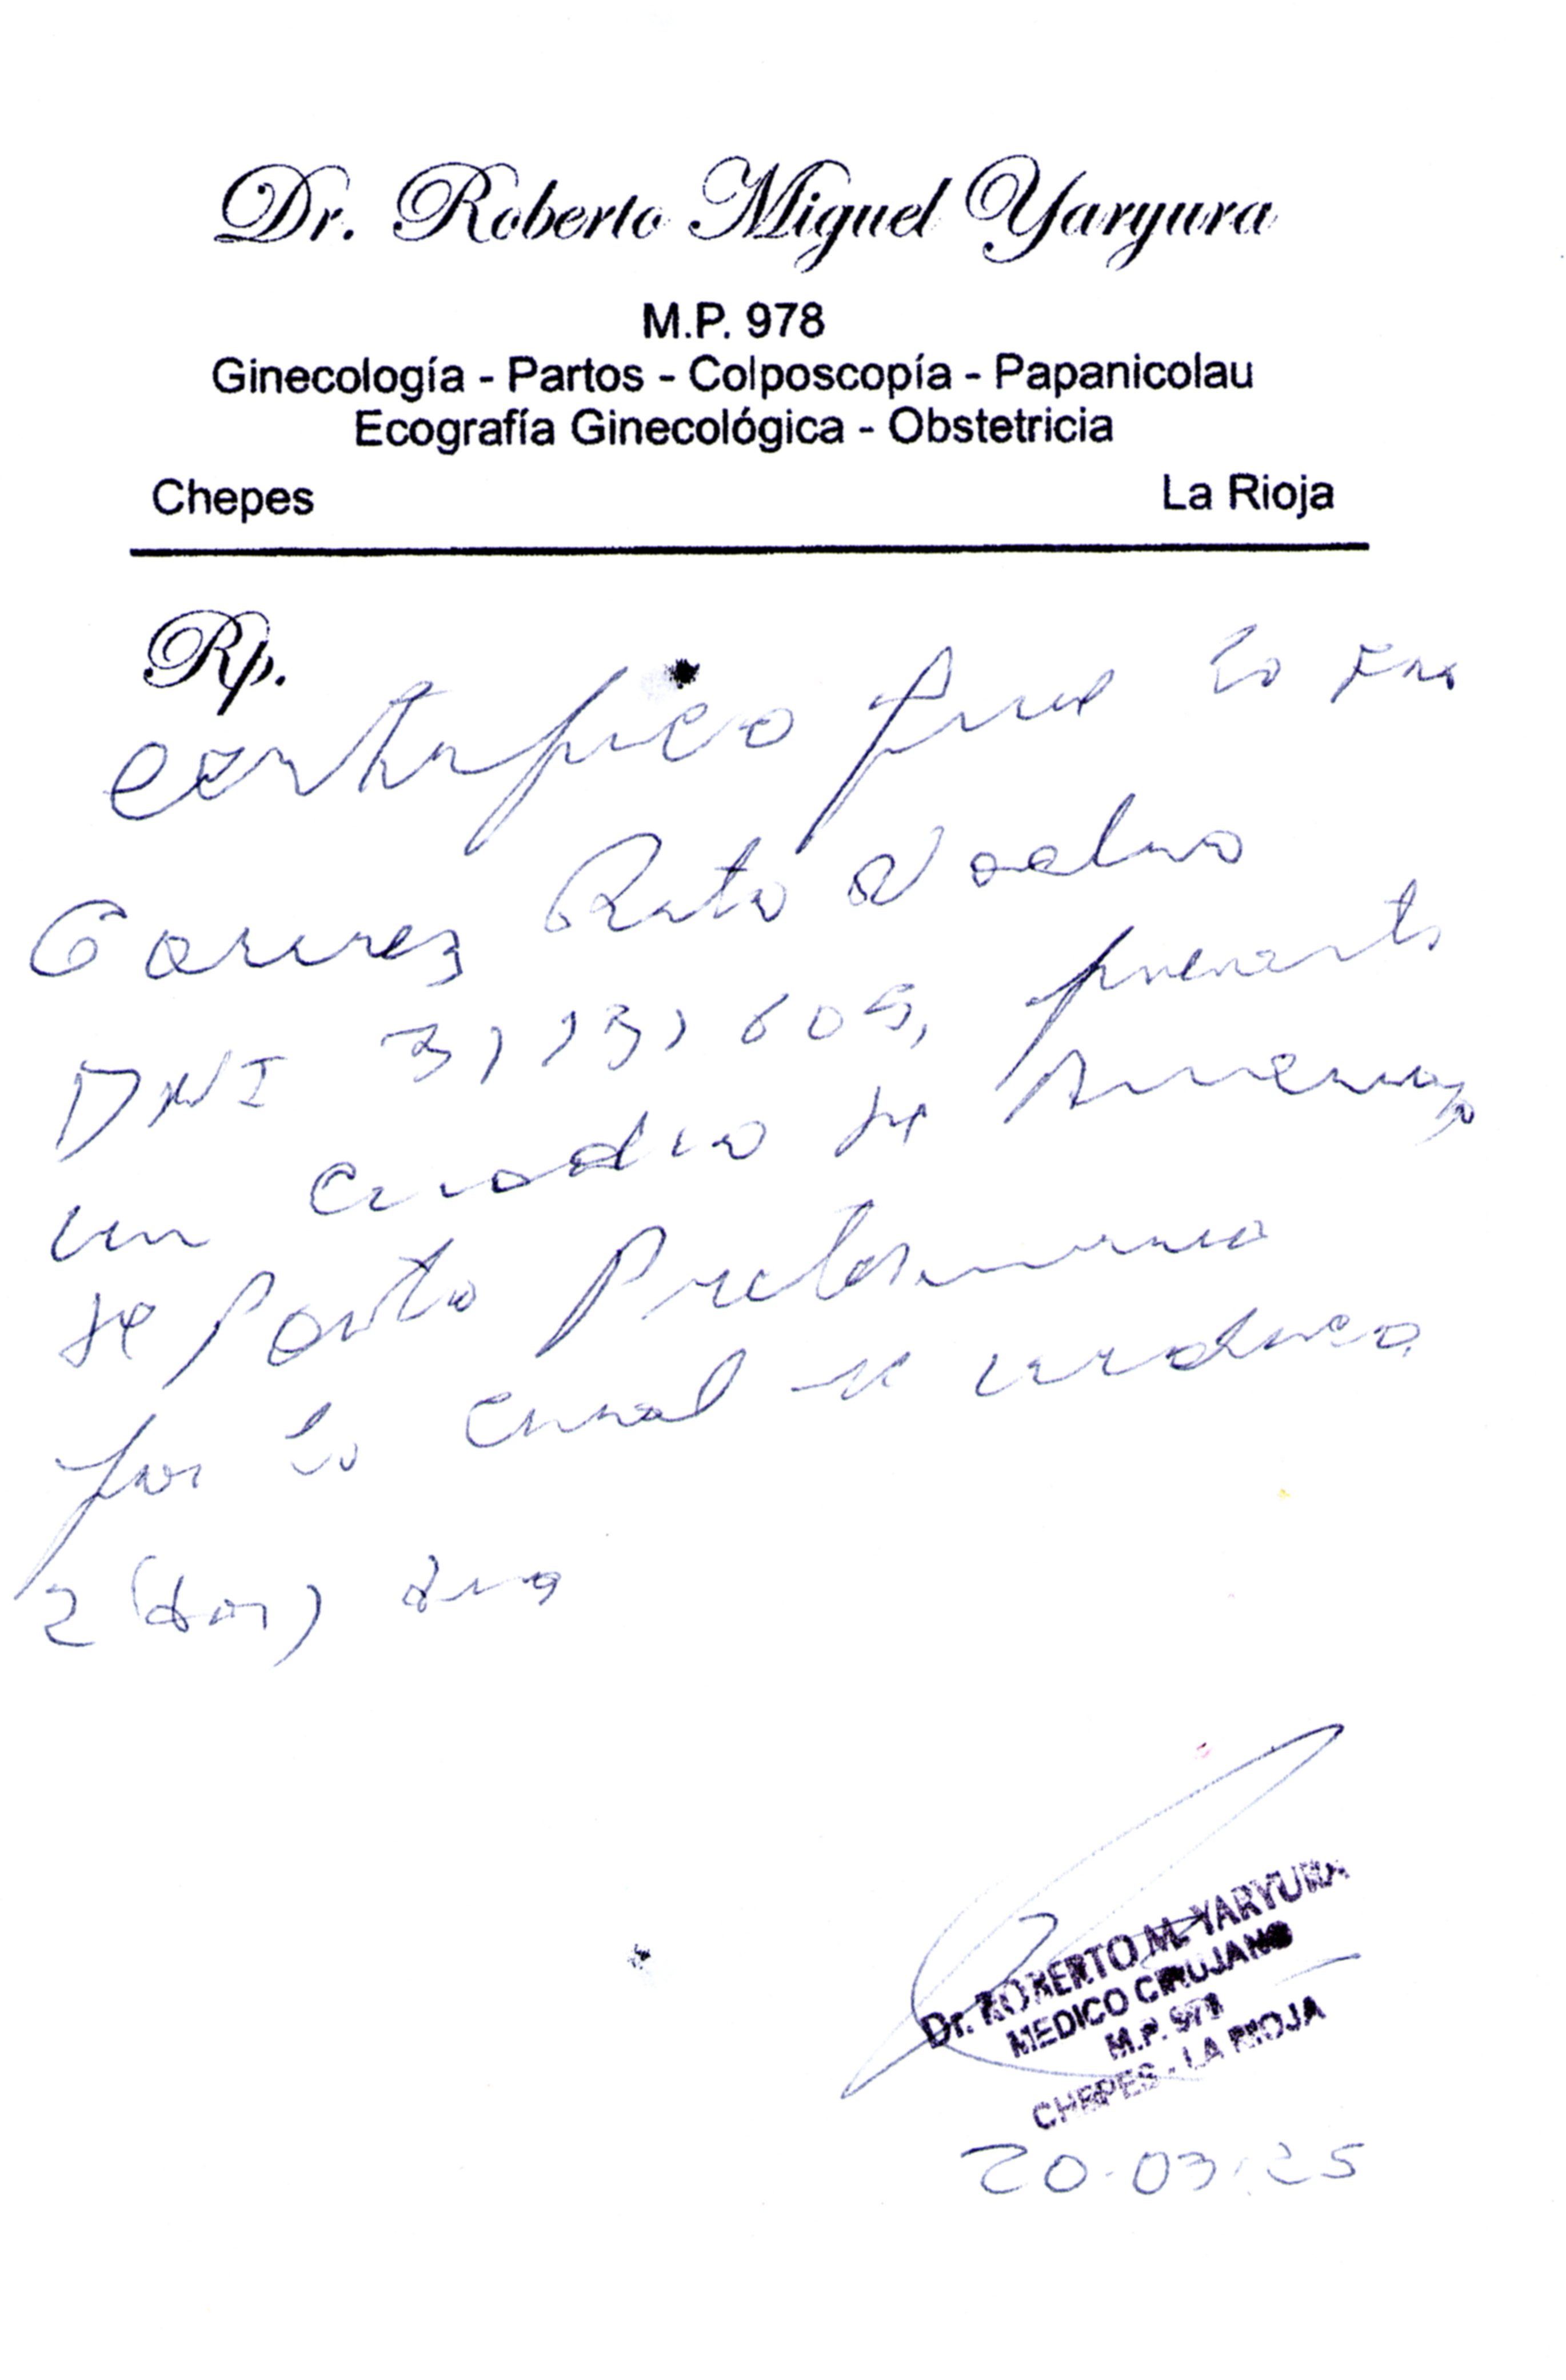 Dr. Roberto Miguel Yaryura
M.P. 978
Ginecología - Partos - Colposcopía - Papanicolau
Ecografía Ginecológica - Obstetricia
Chepes La Rioja
Rp.
Certifico que la
DNI presenta
un cuadro de amenaza
de parto Pretermino
por lo cual se indica
2 (dos) dias
Dr. ROBERTO M. YARYURA
MEDICO CIRUJANO
M.P. 978
CHEPES - LA RIOJA
20.03.25